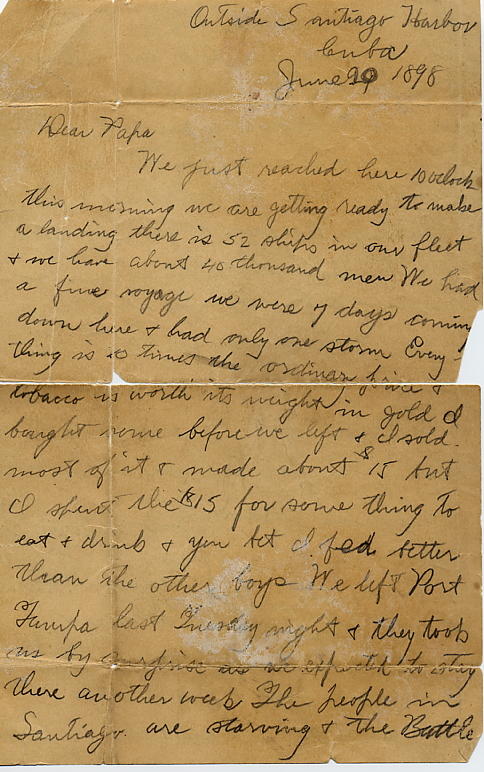 Outside Santiago Harbor
Cuba
June 20 1898
Dear Papa
We just reached here 10 oclock
this morning we are getting ready to make
a landing there is 52 ships in our fleet
& we have about 40 thousand men We had
a fine voyage we were 7 days coming
down here & had only one storm Every
thing is times the ordinary price &
tobacco is worth its weight in gold I
bought some before we left & I sold
most of it & made about $15 but
I spent the $15 for some thing to
eat & drink & you bet I fed better
than the other boys We left Port
Tampa last Tuesday night & they took
us by surprise as we expected to stay
there another week The people in
Santiago are starving & the Battle